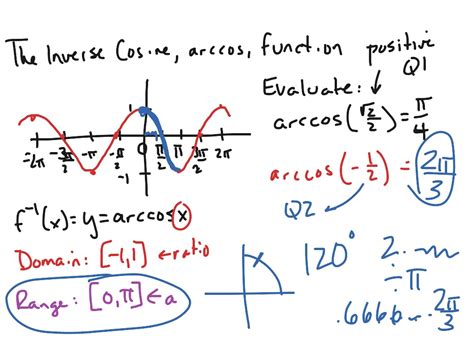 The Inverse Cosine, arccos, function
positive
Q1
Evaluate:
arccos(√2/2) = π/4
1
-2π -3π/2 -π -π/2 0 π/2 π 3π/2 2π
-1
arccos(-1/2) = 2π/3
Q2
f⁻¹(x) = y = arccos x
Domain: [-1,1] ← ratio
Range: [0,π] ← a
120°
÷π
2π/3